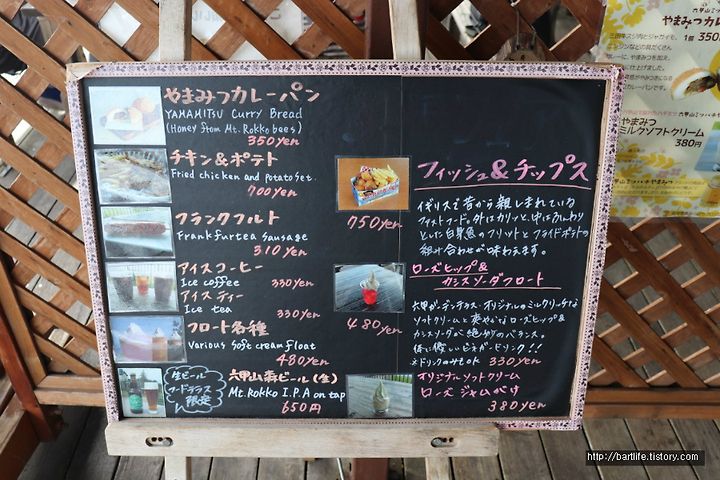 やまみつカレーパン
YAMAMITSU Curry Bread
(Honey from Mt. Rokko bees)
350yen
チキン&ポテト
Fried chicken and Potato set.
700yen
フランクフルト
Frankfurtea Sausage
310yen
アイスコーヒー
Ice coffee 330yen
アイスティー
Ice tea 330yen
フロート各種
Various soft cream float
480yen
生ビール
フードテラス
限定
六甲山森ビール(生)
Mt.Rokko I.P.A on tap
650円
750yen
480yen
フィッシュ&チップス
イギリスで昔から親しまれている
ファストフード。外はカリッと、中はふんわり
とした白身魚のフリットとフライドポテトの
組み合わせが味わえます。
ローズヒップ&
カシスソーダフロート
六甲ガーデンテラス・オリジナルのミルクリーなソフトクリームと爽やかなローズヒップ&
カシスソーダが絶妙のバランス。
体に優しいビネガードリンク!!
※ドリンクのみもok 330yen
オリジナルソフトクリーム
ローズジャムがけ
380yen
やまみつカレ
1個 350
やまみつ
ミルクソフトクリーム
380円
http://bartlife.tistory.com